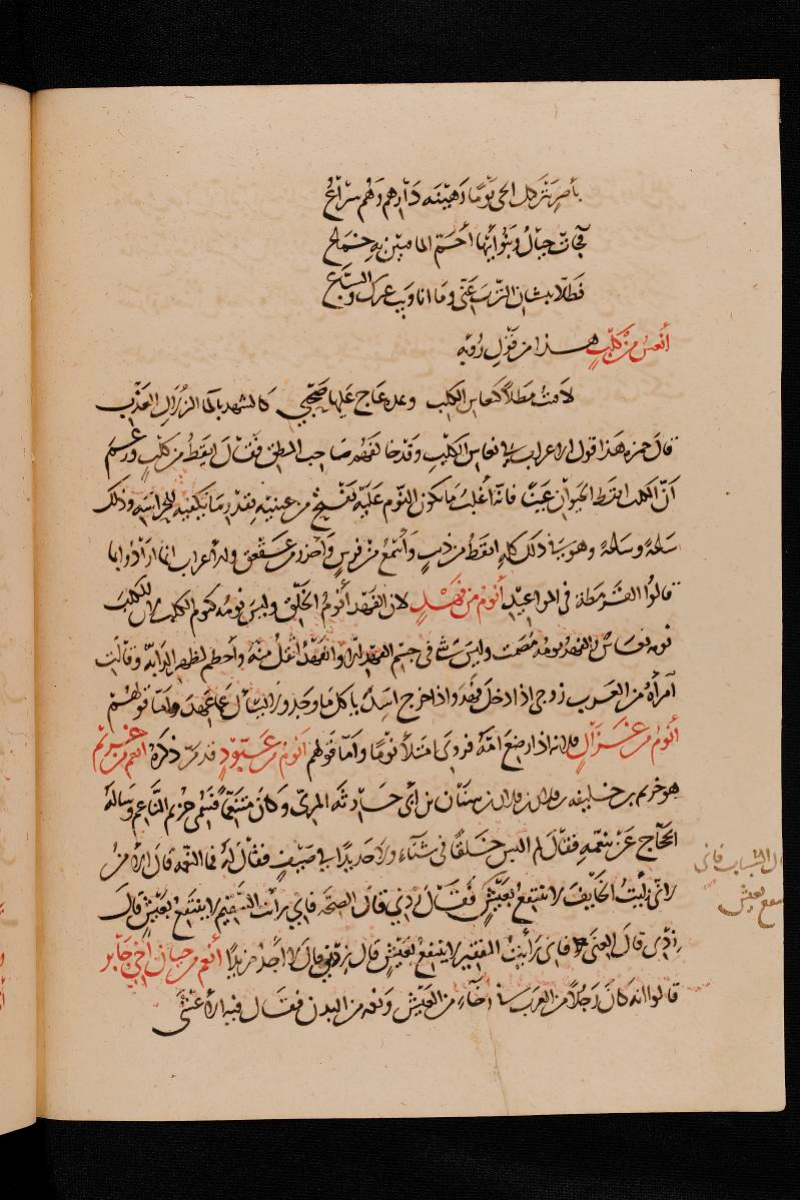 بأصر يترك الحي يوما رهينة دارهم وهم سراع
فجاءت جيأل وبنو أبيها أحم المأقيين به خماع
فظلا ينبشان الترب عني وما أنا ويب غيرك والسباع
أنعس من كلب هذا من قول رؤبة
لاقيت مطلا كنعاس الكلب وعدة عاج عليها صحبي كالشهد بالماء الزلال العذب
قال حمزة هذا قول الاعراب في نعاس الكلب وقد خالفهم صاحب المنطق فقال ايقظ من كلب وزعم
ان الكلب ايقظ الحيوان عينا فانه أغلب ما يكون النوم عليه يفتح من عينيه بقدر ما يكفيه للحراسة وذلك
ساعة وساعة وهو في ذلك كله ايقظ من ذئب وأسمع من فرس وأحذر من عقعق والاعراب انما ارادوا بما
قالوا المطلة في المواعيد أنوم من فهد لان الفهد أنوم الخلق وليس نومه كنوم الكلب لان الكلب
نومه نعاس والفهد نومه مصمت وليس شيء في جسم الفهد الا والفهد أثقل منه وأحطم لظهر الدابة وقالت
امرأة من العرب زوجي اذا دخل فهد واذا خرج اسد يأكل ما وجد ولا يسأل عما عهد واما قولهم
أنوم من غزال فلانه اذا رضع امه فروي امتلأ نوما واما قولهم أنوم من عبود فقد مر ذكره أنعم من خريم
هو خريم بن خليفة بن فلان بن فلان بن سنان بن أبي حارثة المري وكان متنعما فسمي خريم الناعم وسأله
الحجاج عن تنعمه فقال لم البس خلقا في شتاء ولا جديدا في صيف فقال له فما النعمة قال الامن
لاني رأيت الخايف لا ينتفع بعيش فقال زدني قال الصحة فاني رأيت السقيم لا ينتفع بعيش قال
زدني قال الغنى فاني رأيت الفقير لا ينتفع بعيش قال زدني قال لا أجد مزيدا أنعم من حيان أخي جابر
قالوا انه كان رجلا من العرب في رخاء من العيش ونعمة من البدن فقال فيه الاعشى
قال الشباب فاني
ينتفع بعيش